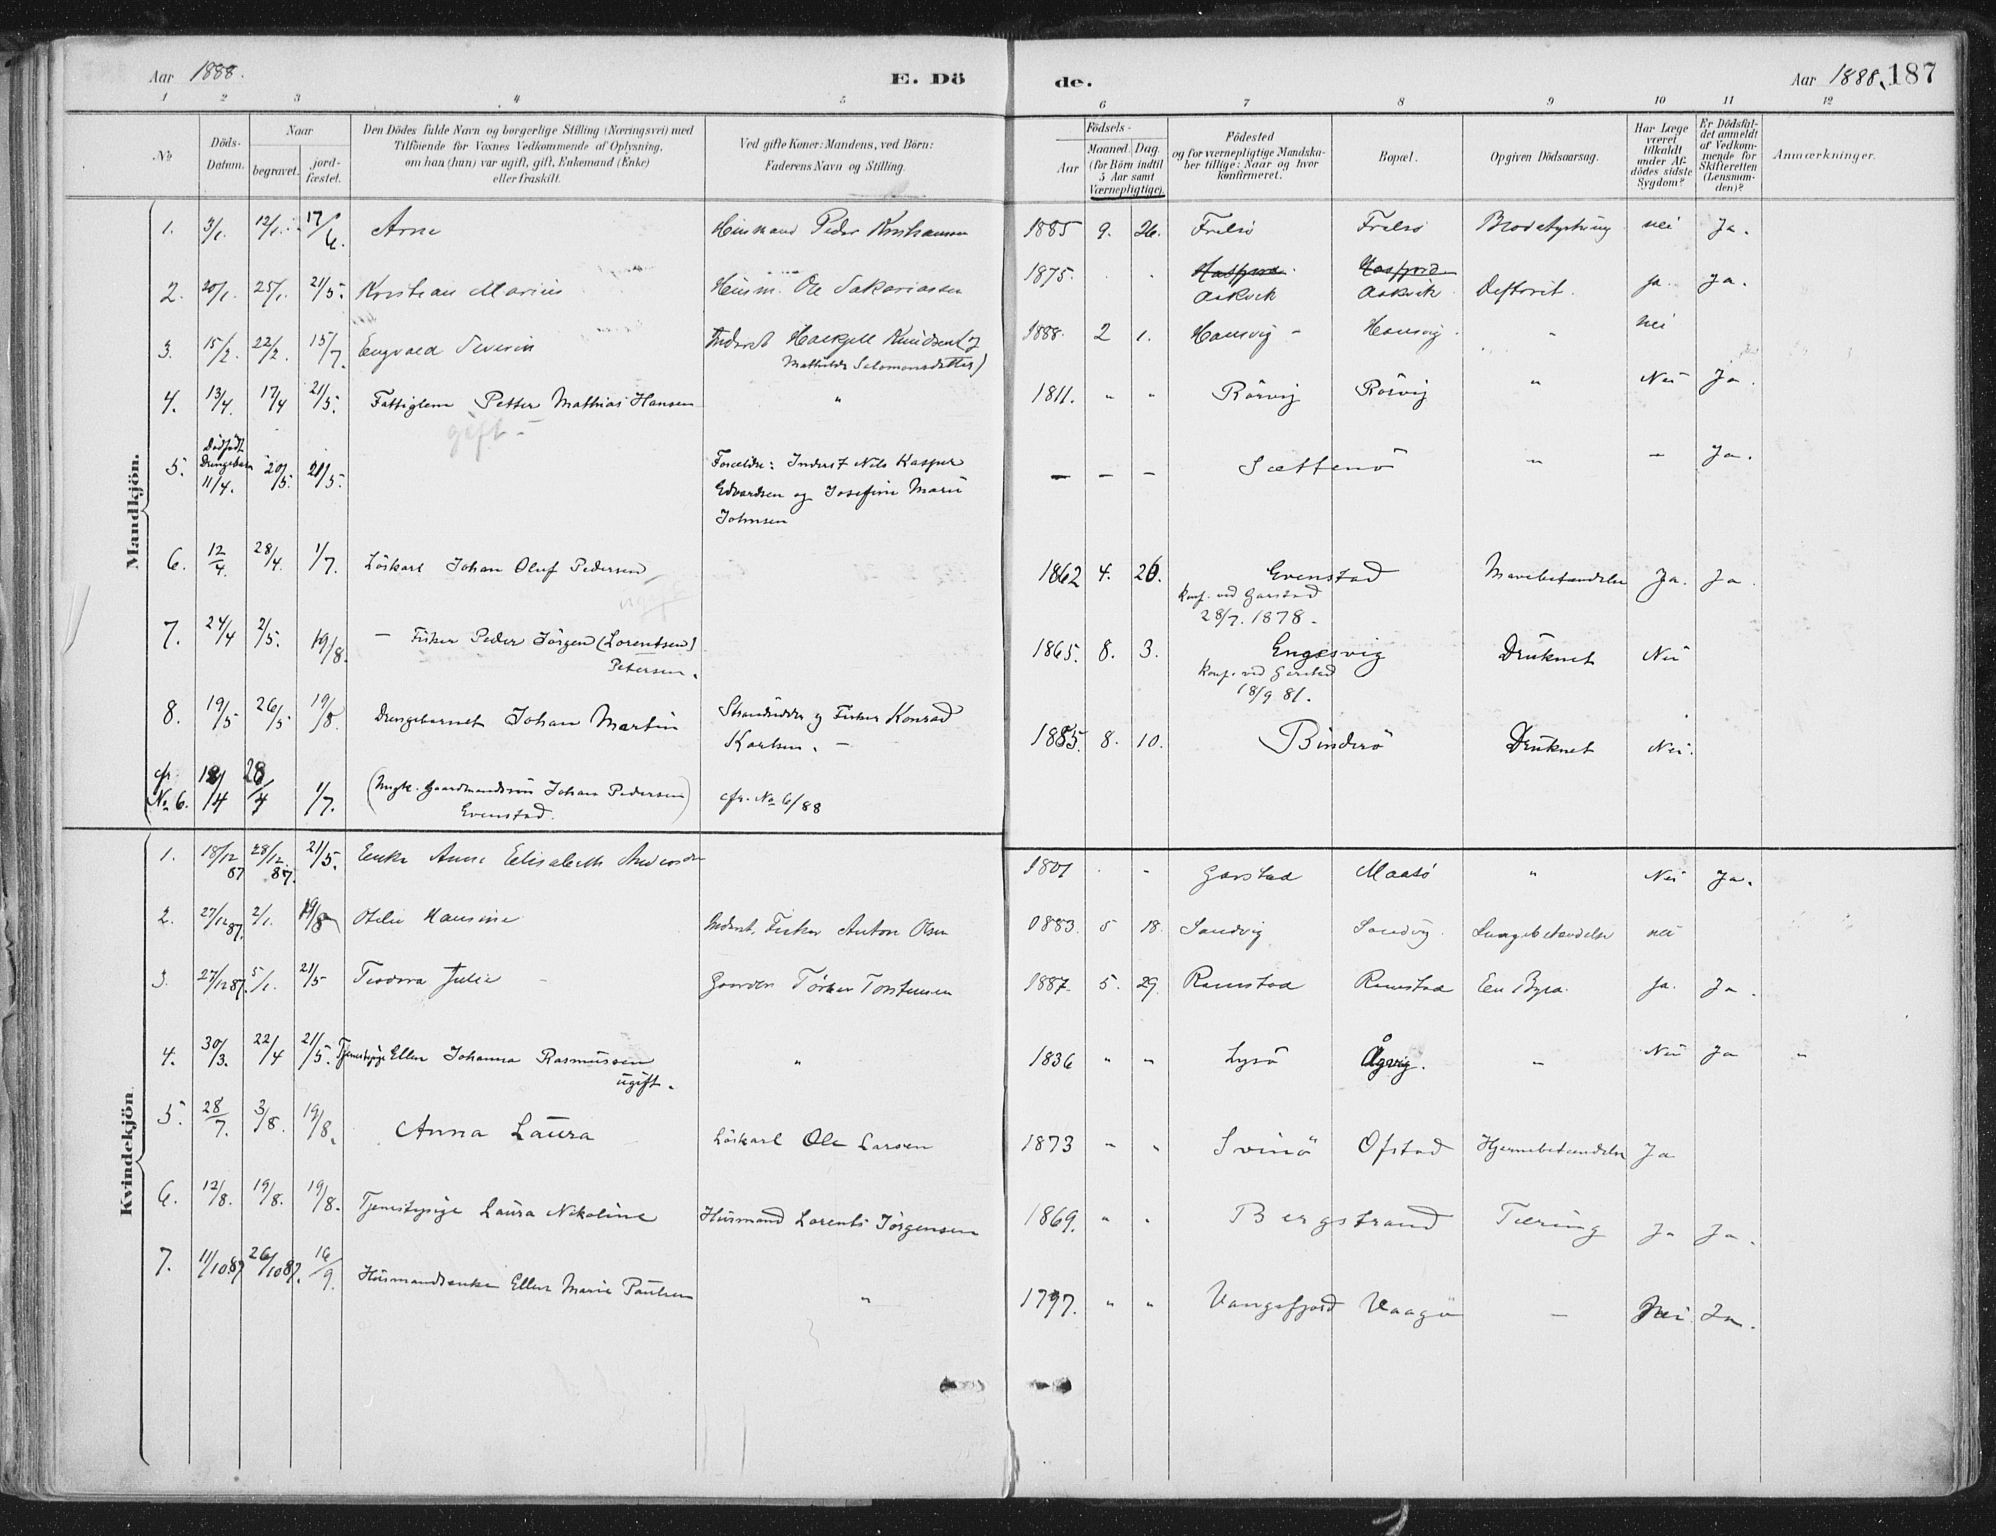 Aar 1888. E. Dö de. Aar 1888. 187
1 2 3 4 5 6 7 8 9 10 11 12
No
Döds-Datum.
Naar
begravet.
jord-fæstet.
Den Dödes fulde Navn og borgerlige Stilling (Næringsvei) med
Tilföiende for Voxnes Vedkommende af Oplysning,
om han (hun) var ugift, gift, Enkemand (Enke)
eller fraskilt.
Ved gifte Koner: Mandens, ved Börn:
Faderens Navn og Stilling.
Födsels-
Aar
Maaned. Dag.
(for Börn indtil
5 Aar samt
Værnepligtige).
Födested
og for værnepligtige Mandska-
ber tillige: Naar og hvor
konfirmeret.
Bopæl.
Opgiven Dödsaarsag.
Har Læge
været
tilkaldt
under Af-
dödes sidste
Sygdom?
Er Dödsfal-
det anmeldt
af Vedkom-
mende for
Skifteretten
(Lensman-
den)?
Anmærkninger.
Mandkjön.
1. 3/1. 12/1. 17/6. Arne Huusmand Peder Kristiansen 1885 9. 26. Frelsö Frelsö nei Ja.
2. 20/1. 25/1. 21/5. Kristian Marius Huusm. Ole Sakariassen 1875. Aakvik Aakvik Defterit. ja. Ja.
3. 15/2. 22/2. 15/7. Engvald Severin Inderst Knudsen (og
Mathilde Salomonsdatter) 1888. 2 1. Hansvig Hansvig. " nei
4. 13/4. 17/4 21/5. Fattiglem Petter Mathias Hansen " 1811. " " Rörvig Rörvig " Nei Ja.
gift -
5. Dödfödt
Drengebarn
11/4. 20/5. 21/5. Forældre: Inderst Nils Kasper
Edvardsen og Josefine Marie
Johnsen — — — Sættenö " — Ja.
6. 12/4. 28/4. 1/7. Löskarl Johan Oluf Pedersen 1862 4. 26. Evenstad Mavebetændelse Ja. Ja.
konf. ved Garstad
28/7. 1878.
7. 24/4 2/5. 19/8. - Fisker Peder Jörgen (Lorentsen)
Petersen. 1865. 8. 3. Engesvig Druknet Nei
konf. ved Garstad
18/9 81.
8. 19/5 26/5 19/8. Drengebarnet Johan Martin Strandsidder og Fisker Konrad
Karlsen. — 1885. 8. 10. Binderö Druknet Nei.
cfr
No 6. 12/4 28/4 1/7. (Ungk. Gaardmandssön Johan Pedersen)
Evenstad. cfr. No 6/88
Kvindekjön
1. 18/12 87 28/12. 87. 21/5. Enke Anne Elisabeth Andersdr 1801 Garstad Maasö " Nei Ja.
2. 27/12 87. 2/1. 19/8 Otelie Hansine Inderst. Fisker Anton Olsen 1883. 5 18. Sandvig Sandvig. Lungebetændelse nei
3. 27/12 87. 5/1. 21/5 Teodora Julie Gaardm Torstensen 1887. 5. 29. Ramstad Ramstad En Byrd. ja. Ja.
4. 30/3. 22/4 21/5. Tjenestepige Ellen Johanna Rasmussen
ugift. " 1836 " " Lysö Ågvig. — Nei Ja "
5. 28/7. 3/8. 19/8. Anna Laura Löskarl Ole Larsen 1873 " " Svinö Ofstad Hjernebetændelse Ja
6. 12/8. 19/8. 19/8. Tjenestepige Laura Nikoline Husmand Lorents Jörgensen 1869. " " Bergstrand Tæring Ja Ja.
7. 11/10 87 26/10 87. 16/9. Husmandsenke Ellen Marie Paulsen " 1797. " " Vangsfjord Vaagö — Nei Ja.